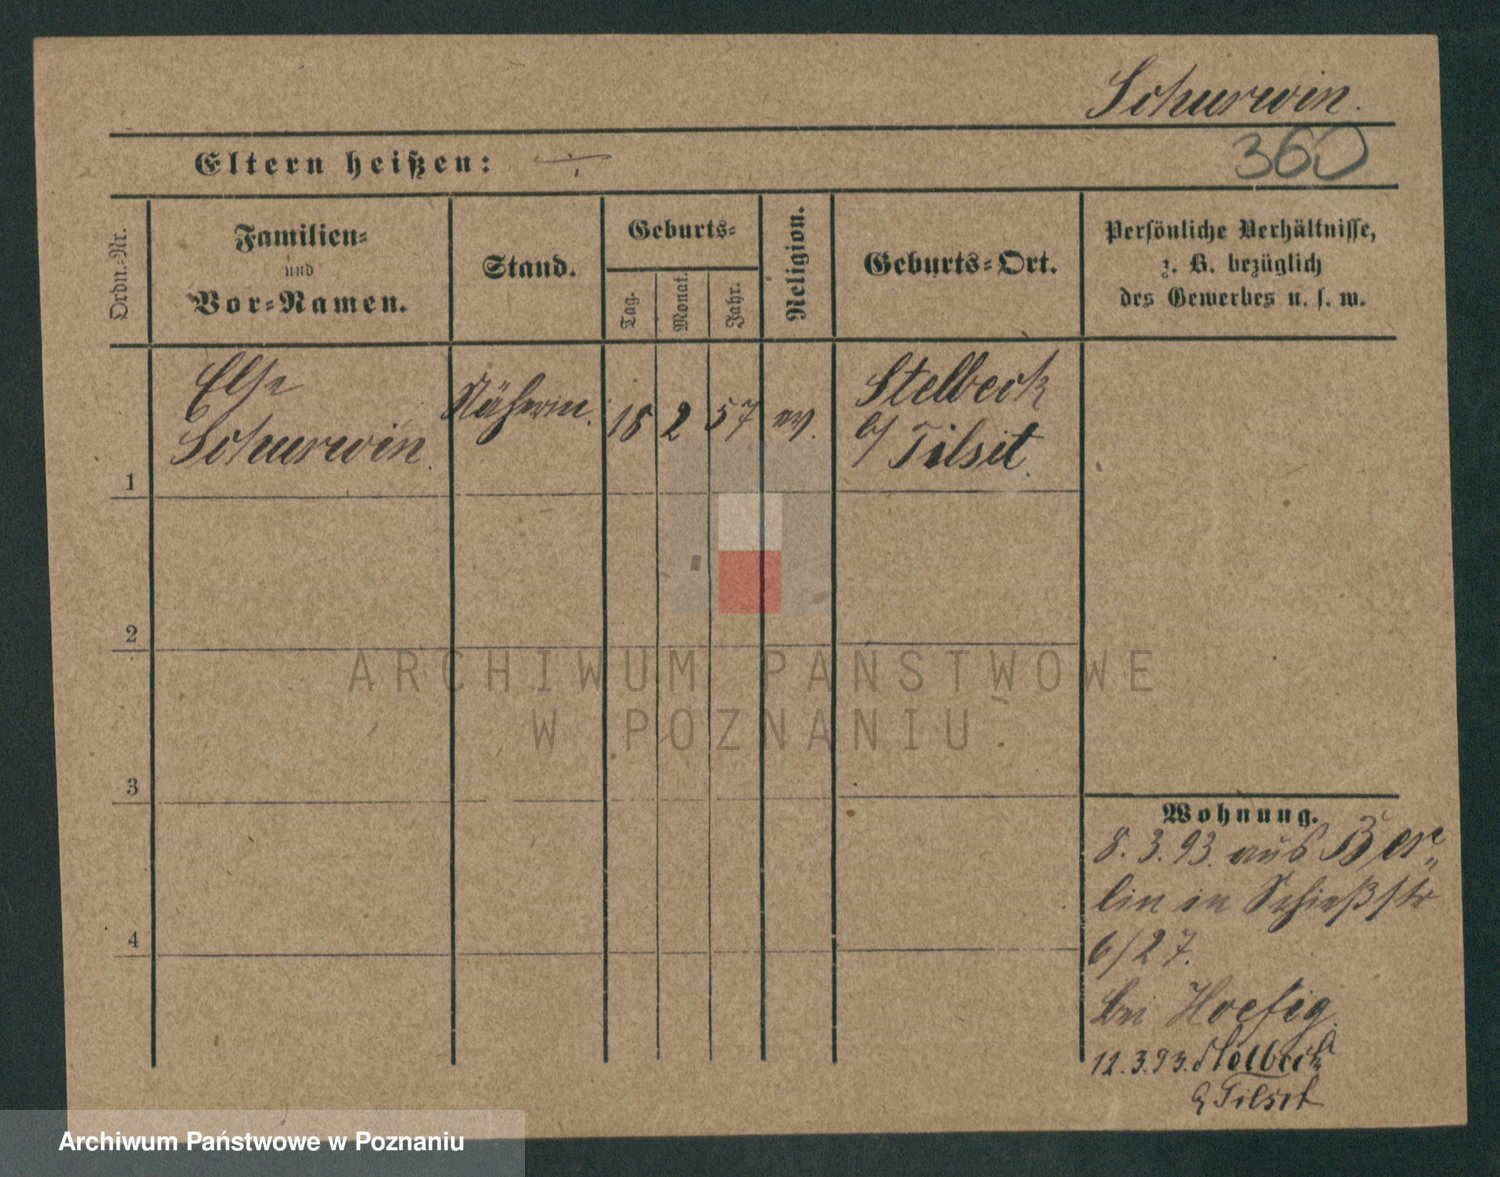 Schurwin.
360
Eltern heißen: ÷
Ordn.-Nr.
Familien-
und
Vor-Namen.
Stand.
Geburts-
Tag.
Monat.
Jahr.
Religion.
Geburts-Ort.
Persönliche Verhältnisse,
z. B. bezüglich
des Gewerbes u. s. w.
1
Else
Schurwin.
Näherin.
18
2
57
ev.
Stelbeck
b/ Tilsit.
2
3
4
Wohnung.
8. 3. 93. aus Ber„
lin in Schießstr
6/27.
bei Hoefig.
12. 3. 93. Stelbeck
b/ Tilsit
ARCHIWUM PAŃSTWOWE
W POZNANIU
Archiwum Państwowe w Poznaniu